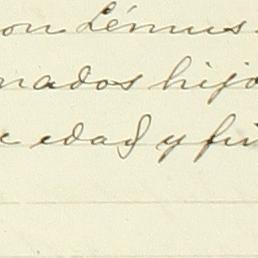 on Lémus
nados hijo
e edad y fu